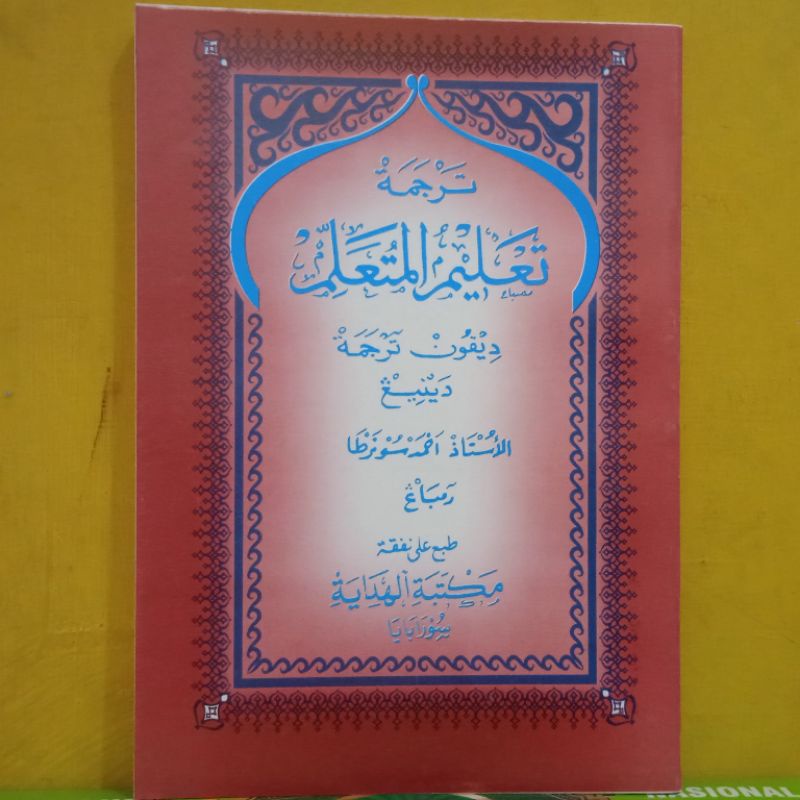 تَرْجَمَةْ
تَعْلِيْمُ الْمُتَعَلِّمْ
مصباح
دِيْڤُوْنْ تَرْجَمَةْ
دَيْنِيْڠْ
الأُسْتَاذْ اَحْمَدْ سُوْنَرْطَا
رمباڠْ
طبع على نفقة
مَكْتَبَةْ الْهِدَايَةْ
سُوْرَابَايَا
NASIONAL